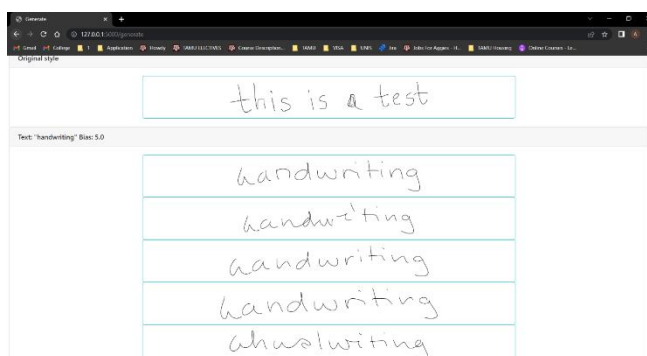 Generate
127.0.0.1:5000/generate
Gmail College Application Howdy TAMU ELECTIVES Course Description... TAMU VISA Jira Jobs For Aggies - H... TAMU Housing Online Courses - Le...
Original style
this is a test
Text: "handwriting" Bias: 5.0
handwriting
handwi'ting
handwriting
handwriting
ahuslwriting